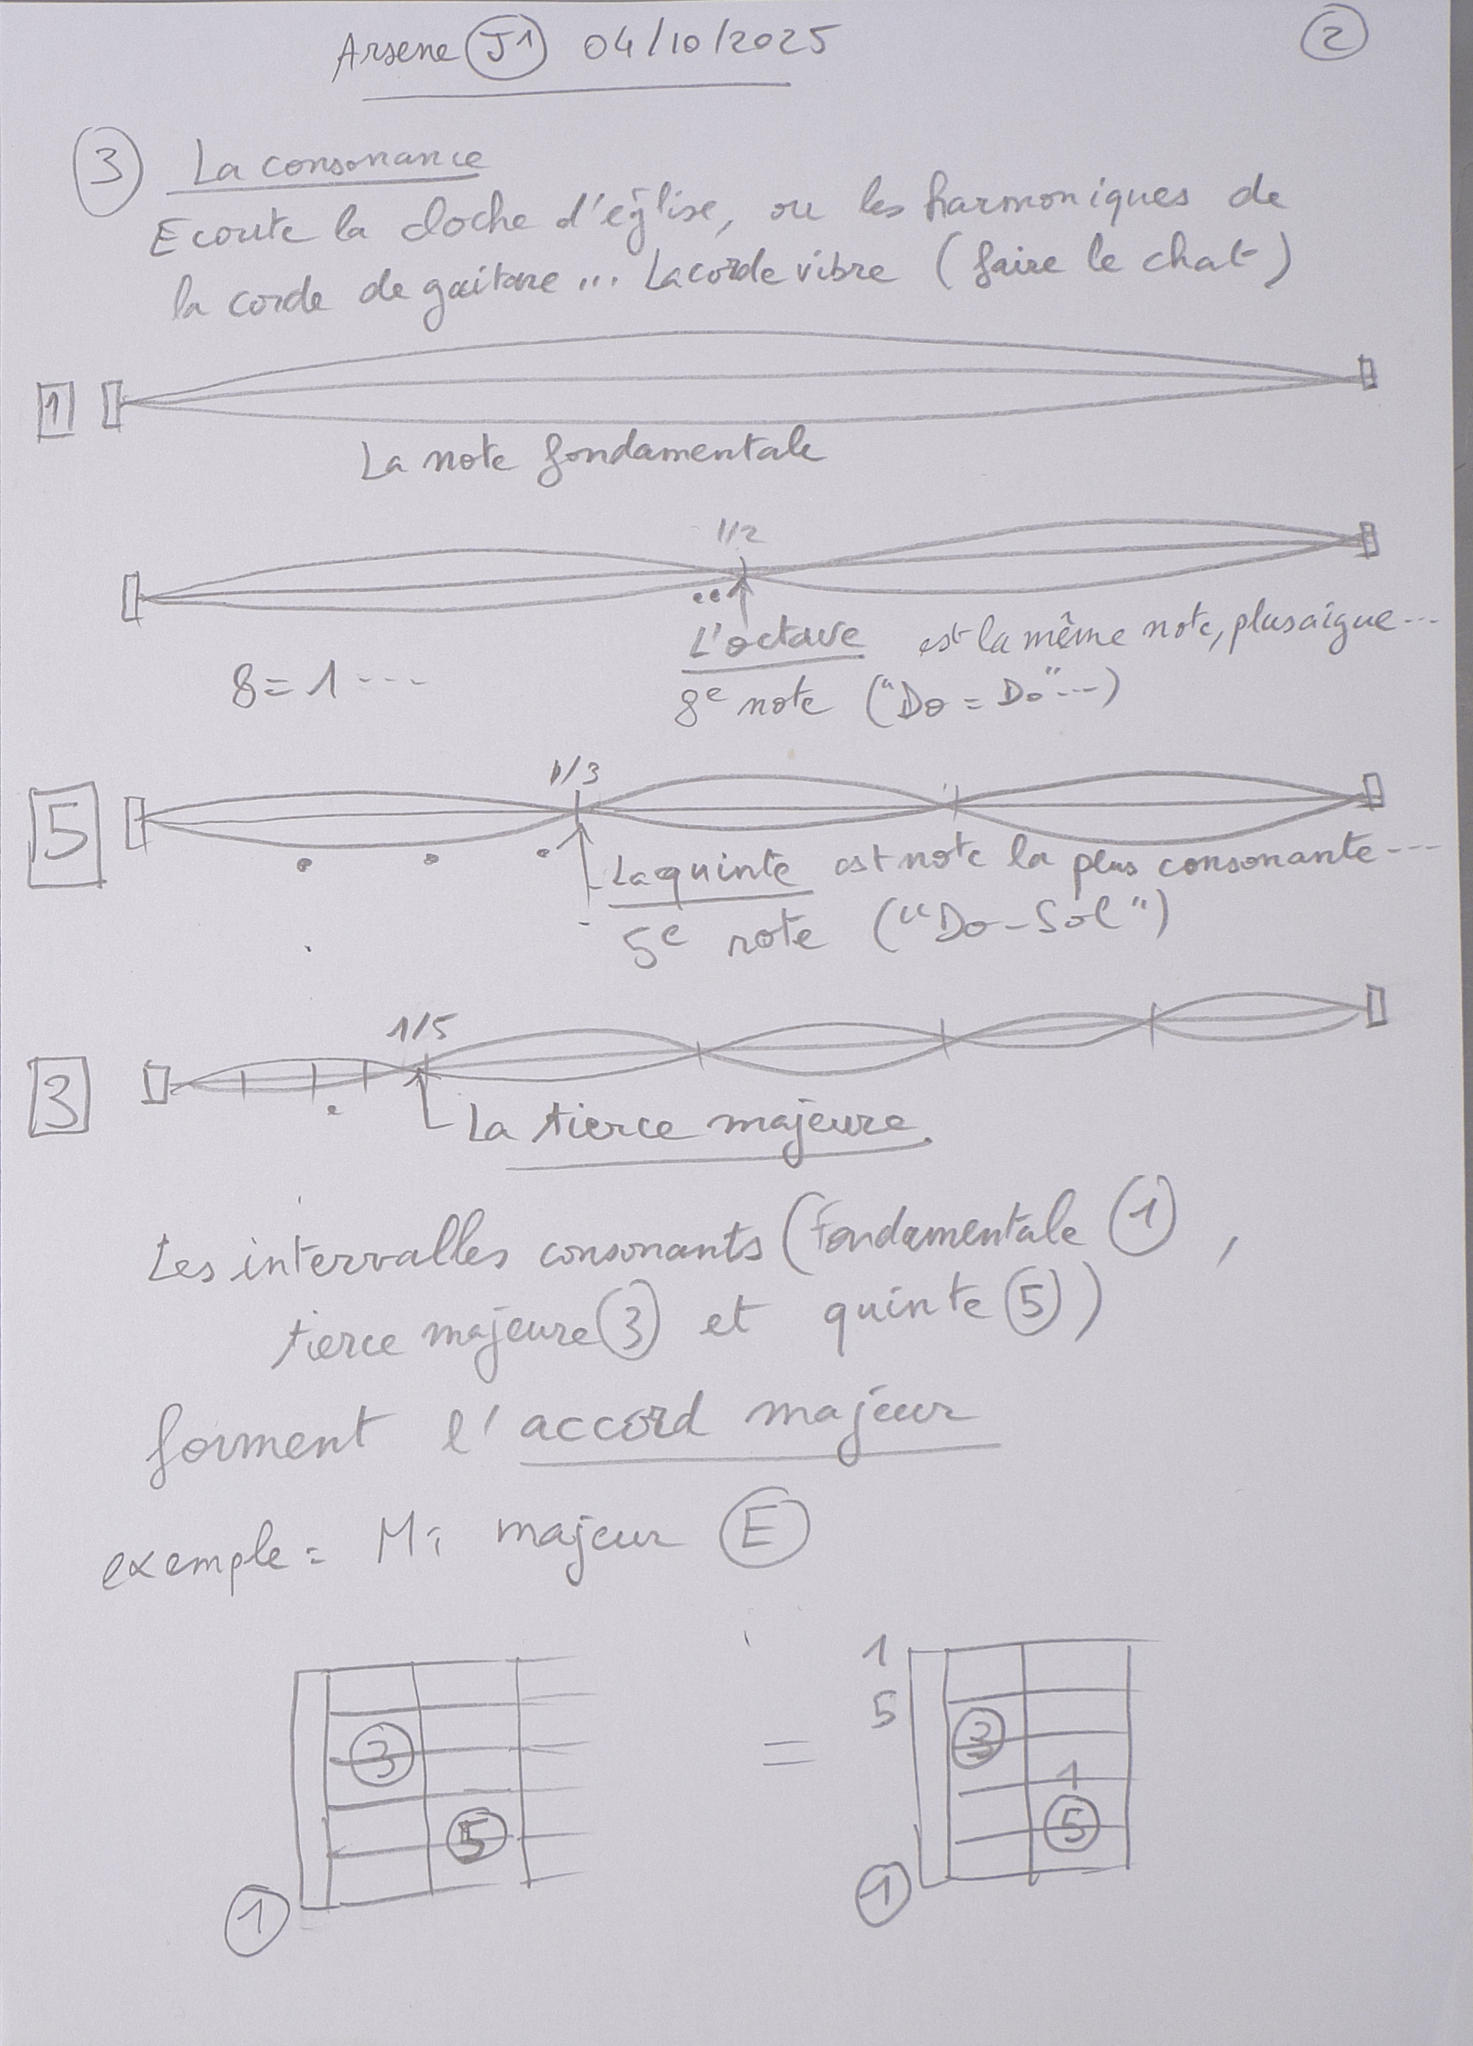 Arsene J1 04/10/2025
2
3 La consonance
Ecoute la cloche d'église, ou les harmoniques de
la corde de guitare... La corde vibre (faire le chat)
1
La note fondamentale
1/2
L'octave est la même note, plus aigue...
8=1... 8e note ("Do = Do"...)
1/3
5
La quinte est note la plus consonante...
5e note ("Do-Sol")
1/5
3
La tierce majeure
Les intervalles consonants (Fondamentale 1,
tierce majeure 3 et quinte 5)
forment l'accord majeur
exemple = Mi majeur E
3
5
1
=
1
5
3
1
5
1